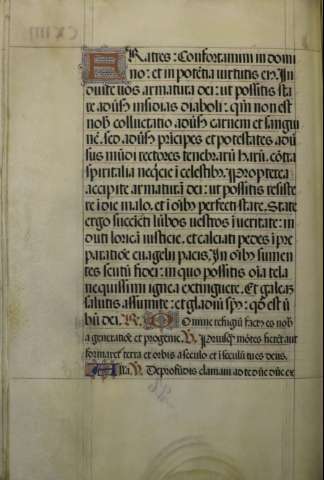 Fratres: Confortamini in domi
no: et in potẽtia virtutis eiꝰ. In
duite vos armaturã dei: ut possitis sta
re adũsꝰ insidias diaboli: qm̃ non est
nob̃ colluctatio adũsꝰ carnem et sangui
nẽ. sed adũsꝰ prĩcipes et potestates adũ
sus mũdi rectores tenebrarũ harũ. cõtra
spiritalia neq̃cie ĩ celestibꝰ. Propterea
accipite armaturã dei: ut possitis resiste
re ĩ die malo. et ĩ oĩbꝰ perfecti stare. State
ergo succĩcti lũbos vestros ĩ veritate: in
duti loricã iusticie. et calciati pedes ĩ pre
paratiõe euãgelij pacis. In oĩbꝰ sumen
tes scutũ fidei: in quo possitis oĩa tela
nequissimi ignea extinguere. Et galeã
salutis assumite: et gladiũ sp̃s: qõ est ũ
bũ dei. R. Domine refugiũ factꝰ es nob̃
a generatiõe et progenie. V. Priusq̃ mõtes fierẽt aut
formaret᷑ terra et orbis a seculo et ĩ seculũ tu es deus.
Alla. V. De profũdis clamaui ad te dñe dñe ex